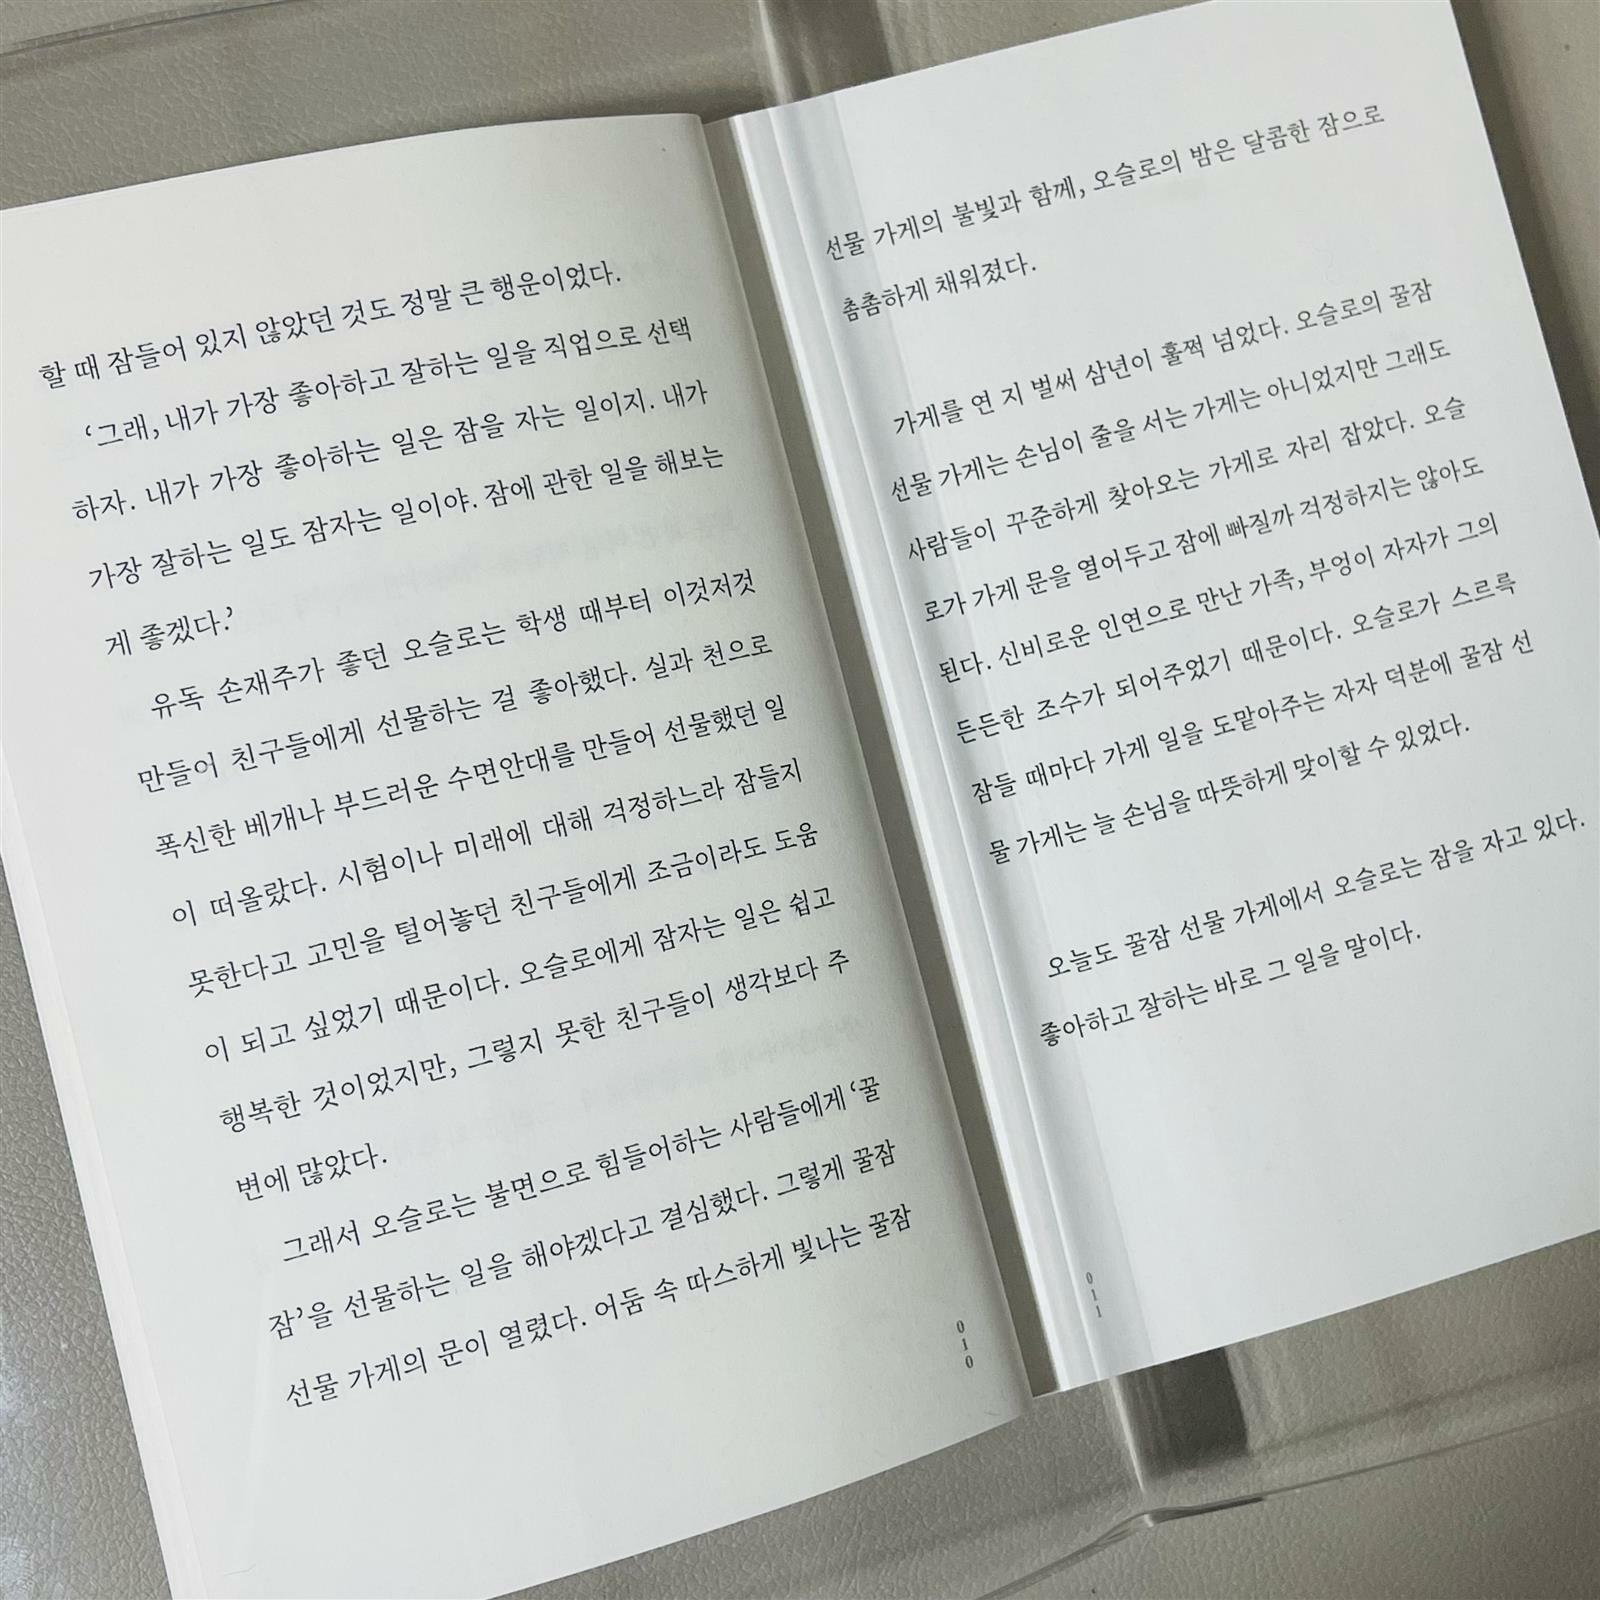 할 때 잠들어 있지 않았던 것도 정말 큰 행운이었다.
‘그래, 내가 가장 좋아하고 잘하는 일을 직업으로 선택
하자. 내가 가장 좋아하는 일은 잠을 자는 일이지. 내가
가장 잘하는 일도 잠자는 일이야. 잠에 관한 일을 해보는
게 좋겠다.’
유독 손재주가 좋던 오슬로는 학생 때부터 이것저것
만들어 친구들에게 선물하는 걸 좋아했다. 실과 천으로
폭신한 베개나 부드러운 수면안대를 만들어 선물했던 일
이 떠올랐다. 시험이나 미래에 대해 걱정하느라 잠들지
못한다고 고민을 털어놓던 친구들에게 조금이라도 도움
이 되고 싶었기 때문이다. 오슬로에게 잠자는 일은 쉽고
행복한 것이었지만, 그렇지 못한 친구들이 생각보다 주
변에 많았다.
그래서 오슬로는 불면으로 힘들어하는 사람들에게 ‘꿀
잠’을 선물하는 일을 해야겠다고 결심했다. 그렇게 꿀잠
선물 가게의 문이 열렸다. 어둠 속 따스하게 빛나는 꿀잠
010
선물 가게의 불빛과 함께, 오슬로의 밤은 달콤한 잠으로
촘촘하게 채워졌다.
가게를 연 지 벌써 삼년이 훌쩍 넘었다. 오슬로의 꿀잠
선물 가게는 손님이 줄을 서는 가게는 아니었지만 그래도
사람들이 꾸준하게 찾아오는 가게로 자리 잡았다. 오슬
로가 가게 문을 열어두고 잠에 빠질까 걱정하지는 않아도
된다. 신비로운 인연으로 만난 가족, 부엉이 자자가 그의
든든한 조수가 되어주었기 때문이다. 오슬로가 스르륵
잠들 때마다 가게 일을 도맡아주는 자자 덕분에 꿀잠 선
물 가게는 늘 손님을 따뜻하게 맞이할 수 있었다.
오늘도 꿀잠 선물 가게에서 오슬로는 잠을 자고 있다.
좋아하고 잘하는 바로 그 일을 말이다.
011